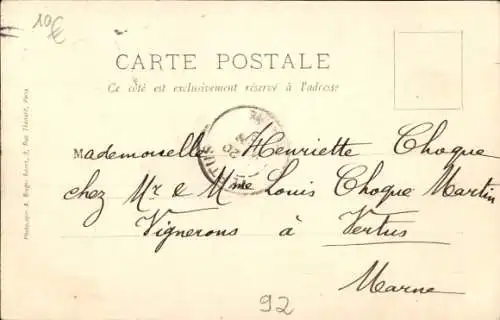 10€
CARTE POSTALE
Ce côté est exclusivement réservé à l'adresse
Mademoiselle Henriette Choque
chez Mr & Mme Louis Choque Martin
Vignerons à Vertus
Marne
92